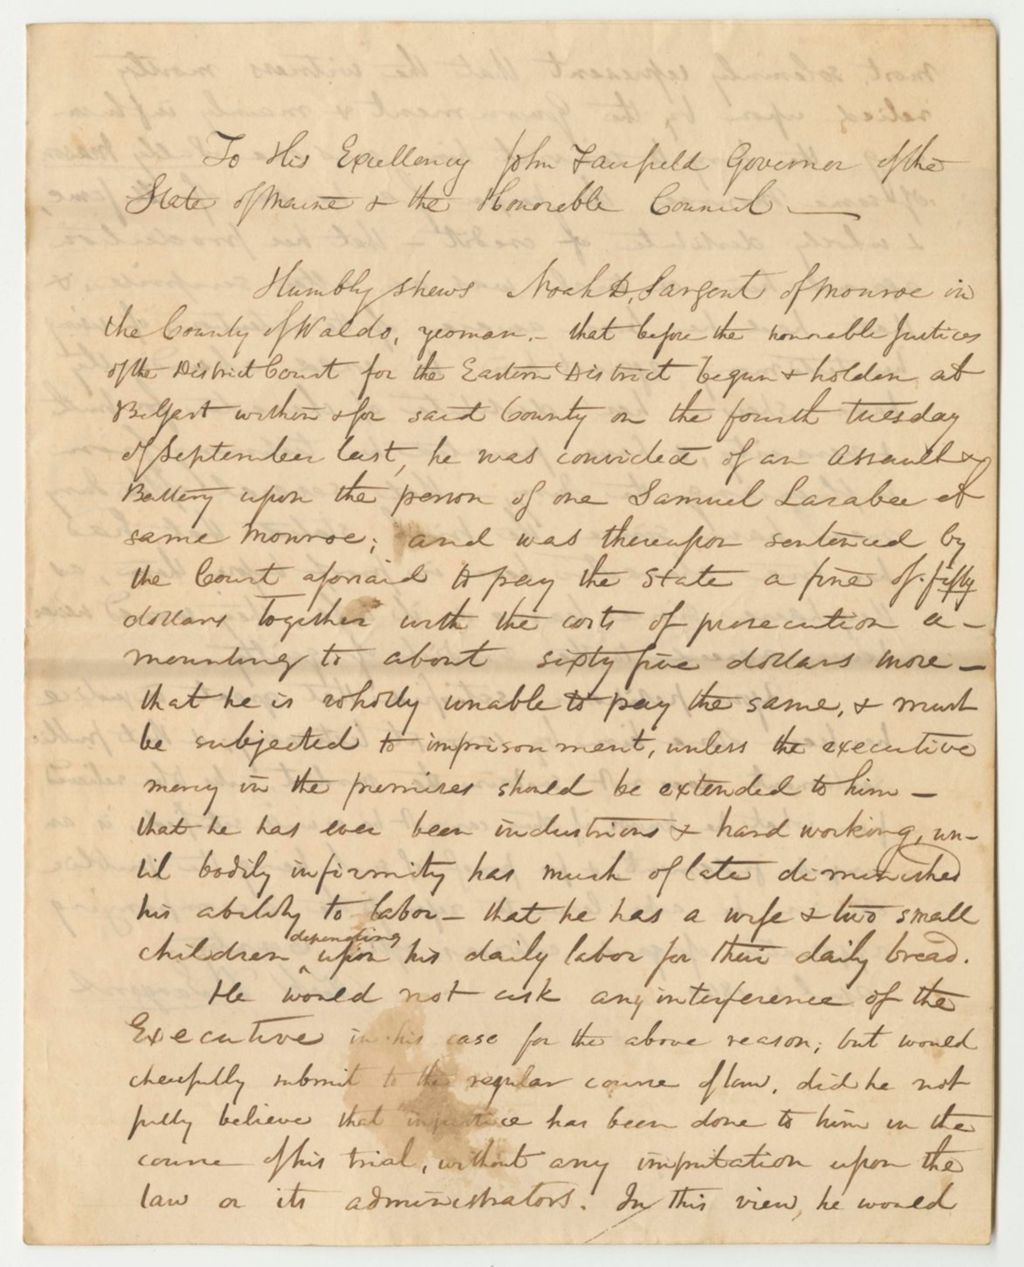 To His Excellency John Fairfield Governor of the
State of Maine & the Honorable Council —
Humbly shews Noah D. Sargent of Monroe in
the County of Waldo, yeoman, – that before the honorable Justices
of the District Court for the Eastern District begun & holden at
Belfast within & for said County on the fourth Tuesday
of September last, he was convicted of an Assault &
Battery upon the person of one Samuel Larabee of
same Monroe; and was thereupon sentenced by
the Court aforesaid to pay the State a fine of fifty
dollars together with the costs of prosecution a-
mounting to about sixty five dollars more —
that he is wholly unable to pay the same, & must
be subjected to imprisonment, unless the executive
mercy in the premises should be extended to him —
that he has ever been industrious & hard working, un-
til bodily infirmity has much of late diminished
his ability to labor – that he has a wife & two small
children depending upon his daily labor for their daily bread.
He would not ask any interference of the
Executive in his case for the above reason; but would
cheerfully submit to the regular course of law, did he not
fully believe that injustice has been done to him in the
course of his trial, without any imputation upon the
law or its administrators. In this view, he would